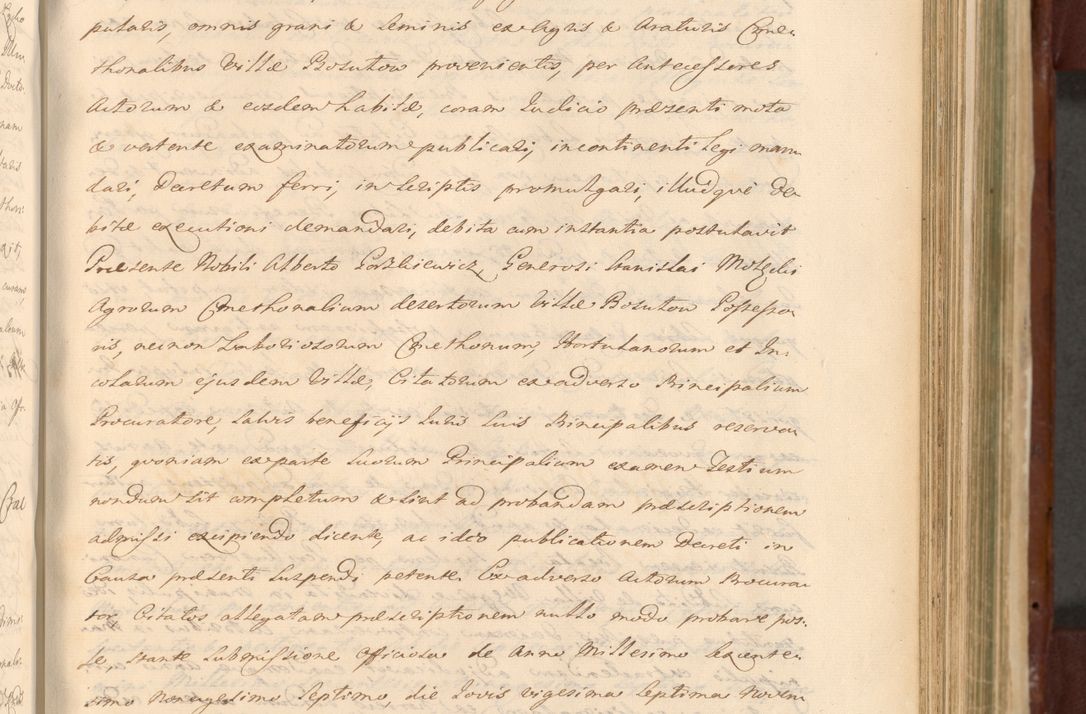 putaris, omnis grani & seminis ex Agris & Araturis Cme-
thonalibus Villæ Bosutow provenientis, per Antecessores
Actorum & eosdem habitæ, coram Iudicio præsenti mota
& vertente examinatorum publicari, incontinenti legi man
dari, Decretum ferri, in scriptis promulgari, illudque de
bitæ executioni demandari, debita cum instantia postulavit
Præsente Nobili Alberto Gorzkiewicz, Generosi Stanislai
Agrorum Cmethonalium desertorum Villæ Bosutow Possesso
ris, necnon Laboriosorum Cmethonum, Hortulanorum et In
colarum ejusdem Villæ, Citatorum ex adverso Principalium
Procuratore, salvis beneficijs Iuris suis Principalibus reserva
tis, quoniam ex parte suorum Principalium examen Testium
nondum sit completum & sint ad probandam præscriptionem
admissi excipiendo dicente, ac ideo publicationem Decreti in
Causa præsenti suspendi petente. Ex adverso Actorum Procura
tor, Citatos allegatam præscriptionem nullo modo probare pos-
se, stante submissione officiosa de Anno Millesimo sexcente-
simo Nonagesimo septimo, die Iovis vigesima septima Novem